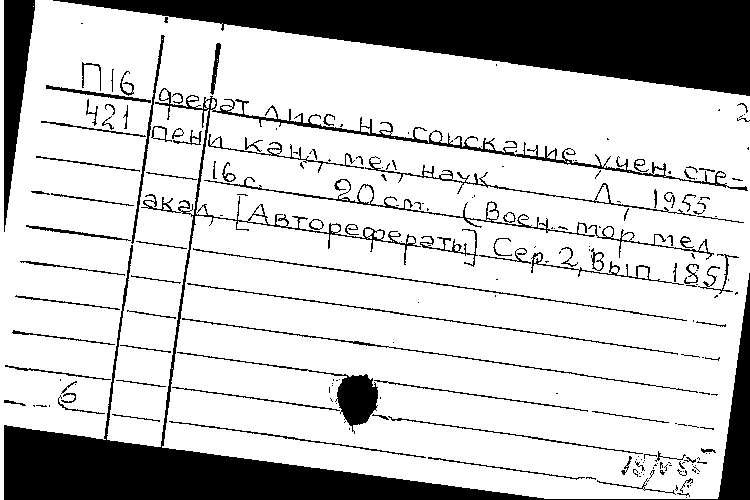 2
П16 ферат дисс. на соискание учен. сте-
421 пени канд. мед. наук. Л., 1955.
16 с. 20 см. (Воен.-мор. мед.
акад. [Авторефераты] Сер. 2, Вып. 185).
6